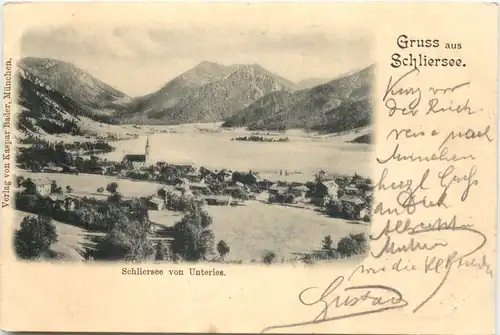 Gruss aus
Schliersee.
Kurz vor
der Rück
reise nach
München
herzl Gruß
an Dich
sowie die
Gustav
Schliersee von Unterries.
Verlag von Kaspar Bader, München.